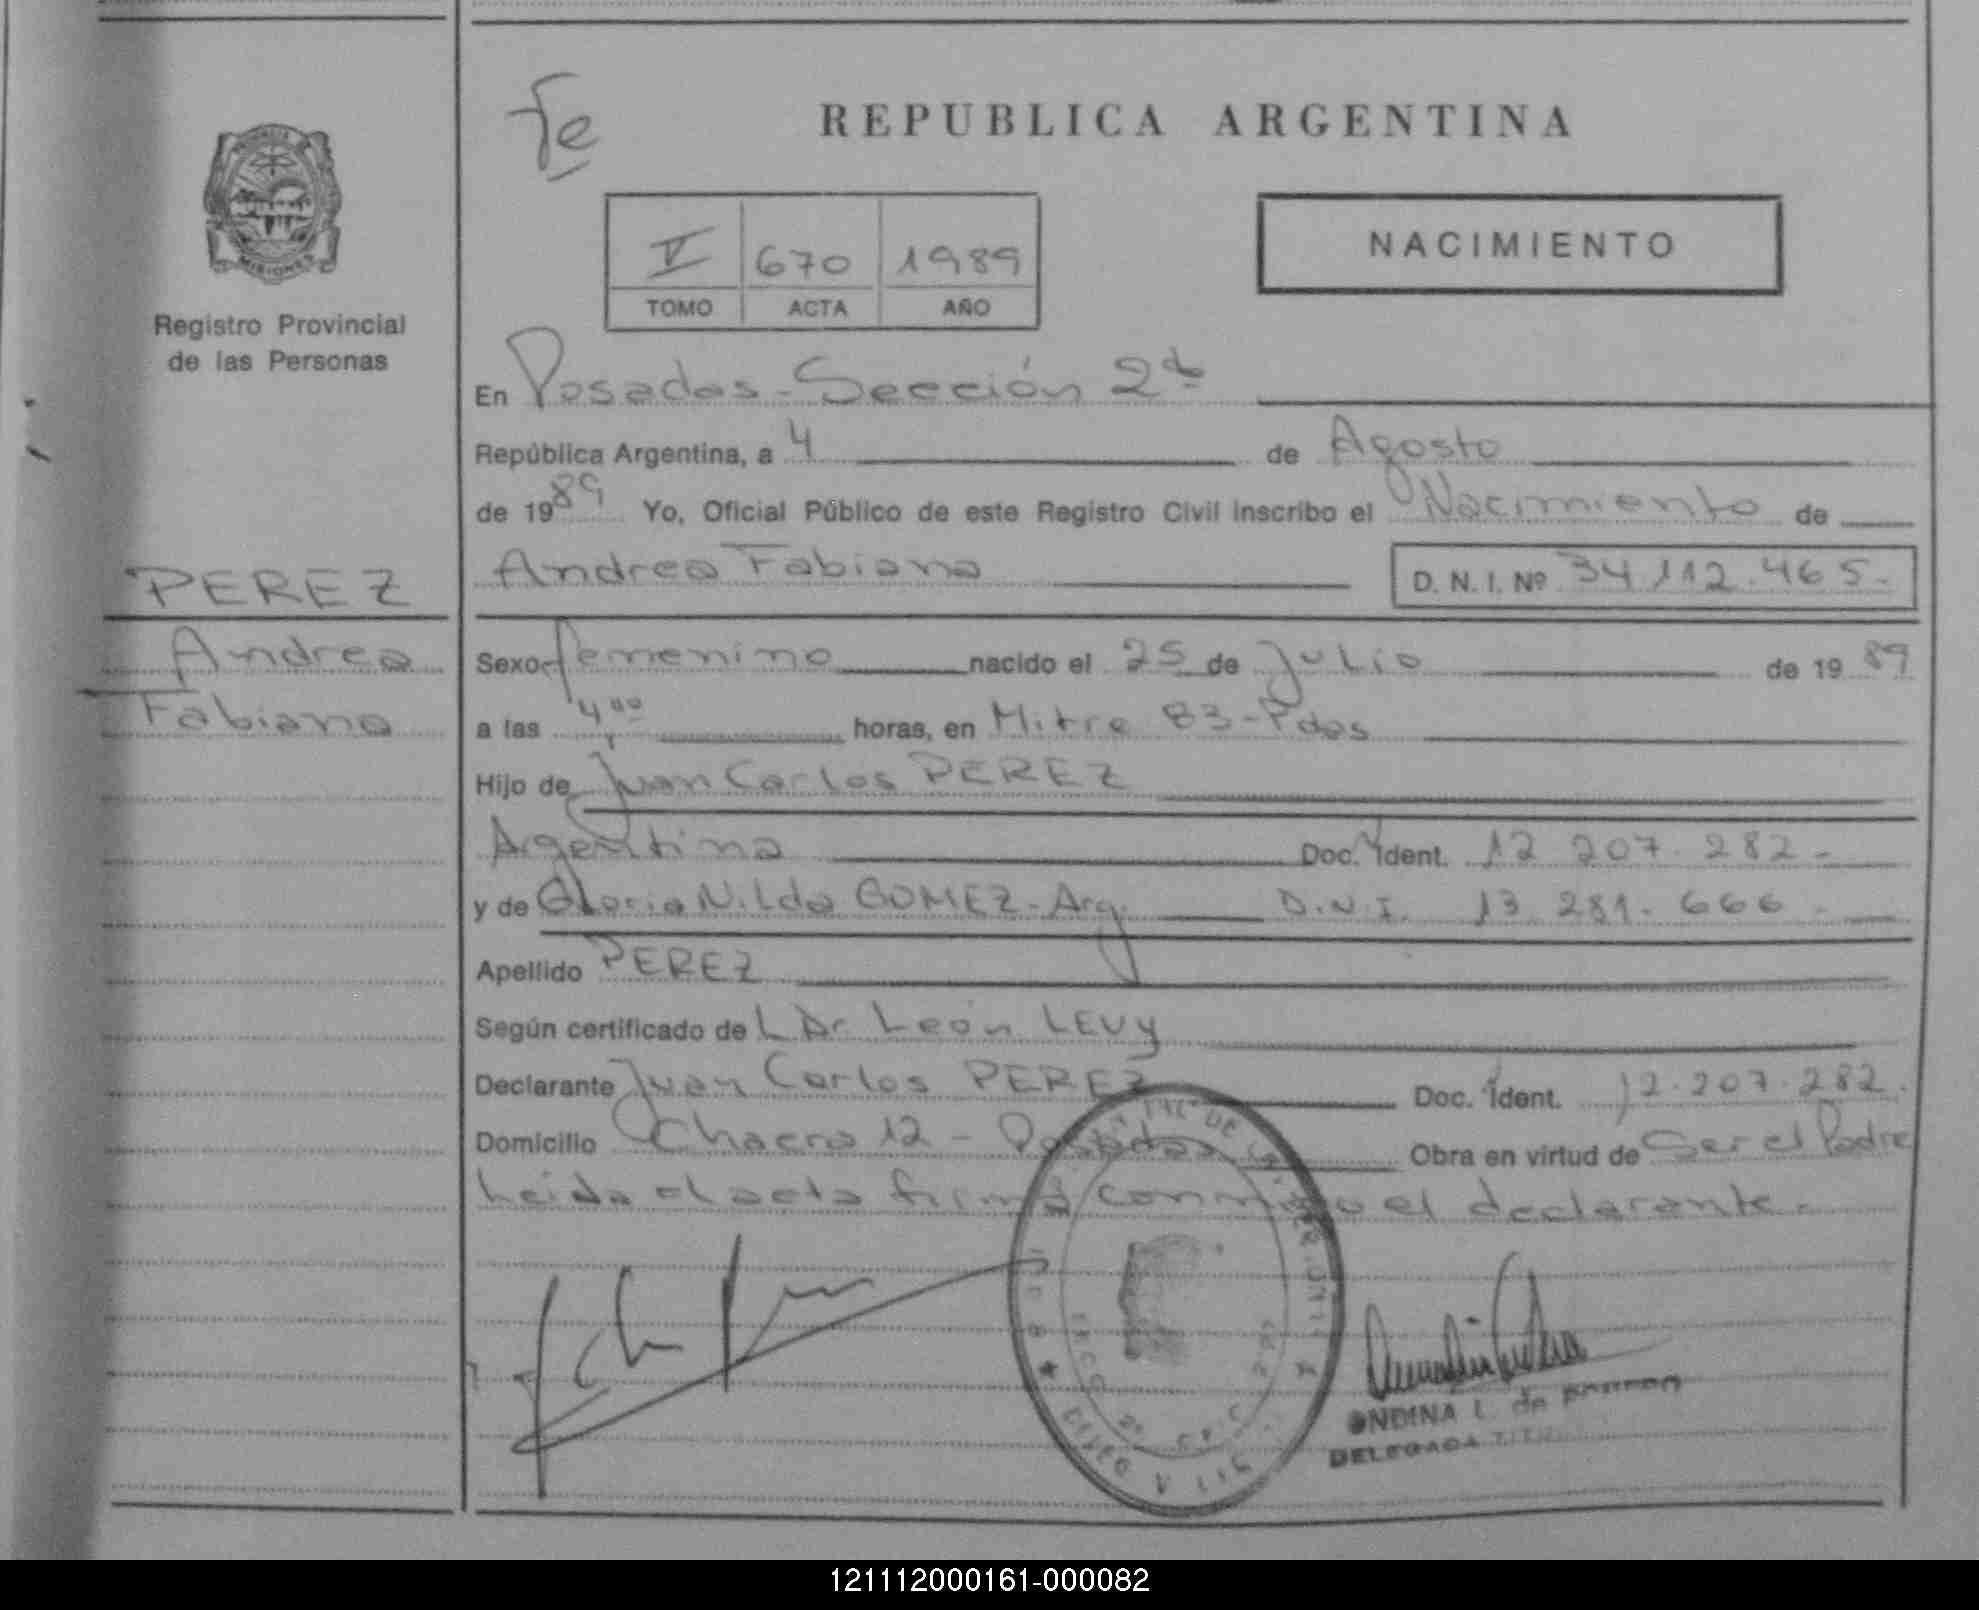 REPUBLICA ARGENTINA
Fe
NACIMIENTO
V 670 1989
TOMO ACTA AÑO
MISIONES
Registro Provincial
de las Personas
En Posadas - Sección 2da
República Argentina, a 4 de Agosto
de 1989 Yo, Oficial Público de este Registro Civil inscribo el Nacimiento de
Andrea Fabiana D. N. I. Nº 34.112.465.-
PEREZ
Andrea
Fabiana
Sexo femenino nacido el 25 de Julio de 1989
a las 4,00 horas, en Mitre 83 - Pdas
Hijo de Juan Carlos PEREZ
Argentina Doc. Ident. 12 207. 282 -
y de Gloria Nilda GOMEZ - Arg. D.N.I. 13 281. 666 -
Apellido PEREZ
Según certificado de L Dr León LEVY
Declarante Juan Carlos PEREZ Doc. Ident. 12.207.282.
Domicilio Chacra 12 - Posadas Obra en virtud de Ser el Padre
Leida el acta firma conmigo el declarante.-
ONDINA L. de
DELEGADA
121112000161-000082